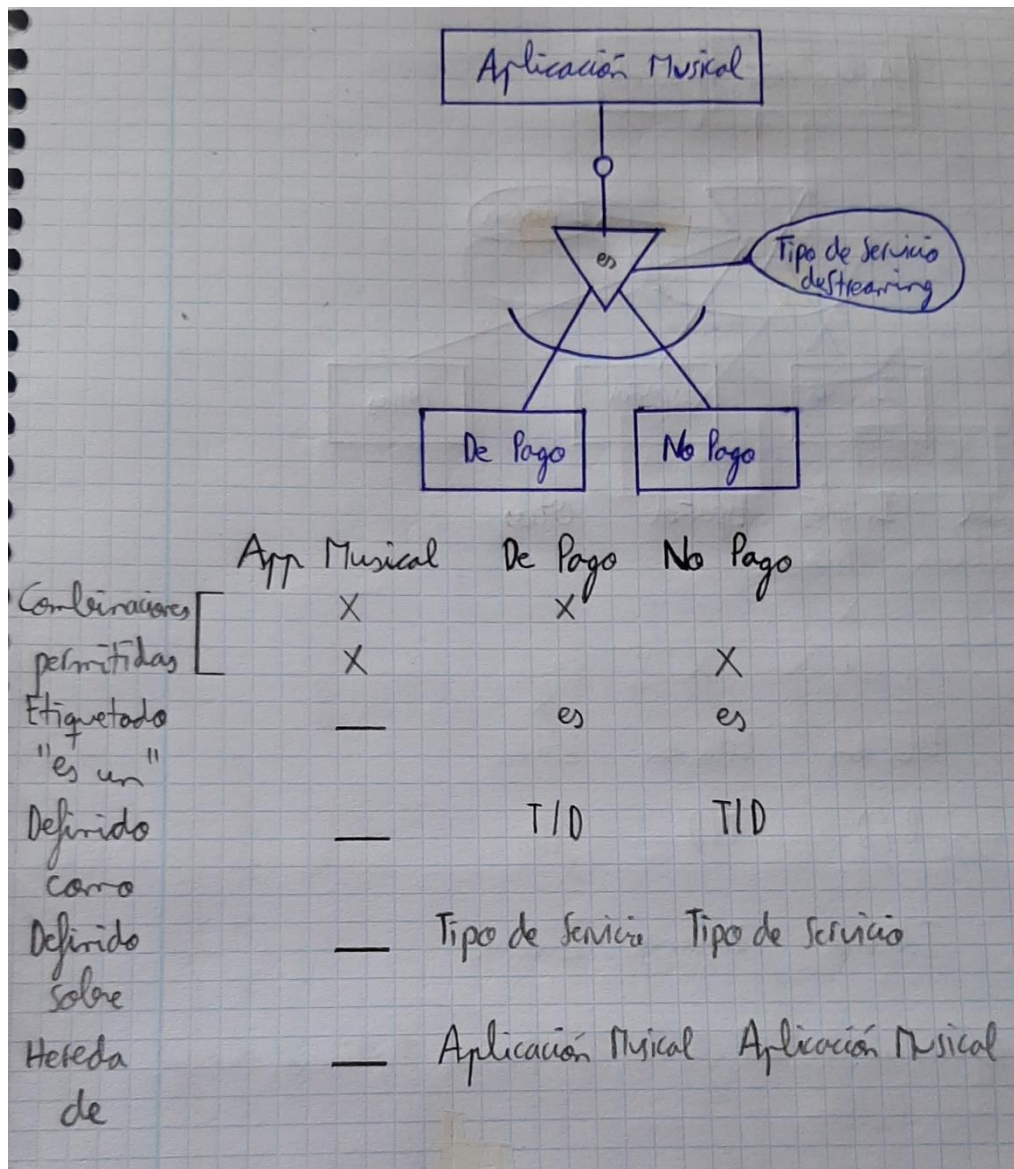 Aplicación Musical
es
Tipo de Servicio
deStreaming
De Pago
No Pago
App Musical De Pago No Pago
Combinaciones X X
permitidas X X
Etiquetado — es es
"es un"
Definido — T/D T/D
como
Definido — Tipo de Servicio Tipo de Servicio
sobre
Hereda — Aplicación Musical Aplicación Musical
de